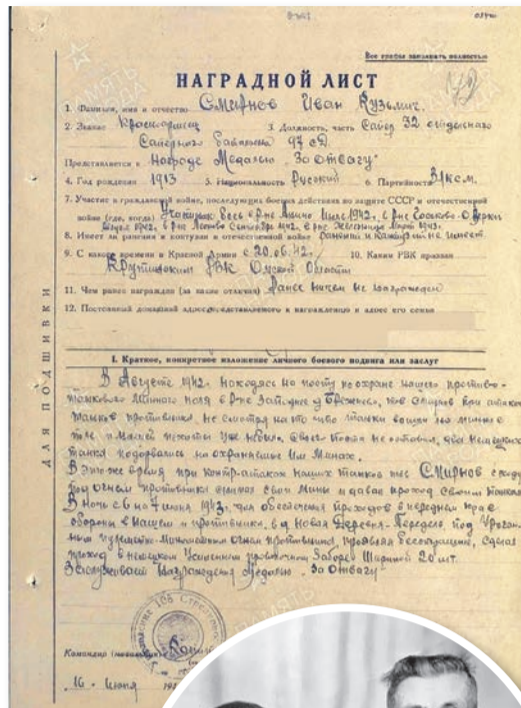 Все графы заполнять полностью
НАГРАДНОЙ ЛИСТ
1. Фамилия, имя и отчество Смирнов Иван Кузьмич.
2. Звание Красноармеец 3. Должность, часть Сапер 32 отдельного
Саперного батальона 97 СД
Представляется к Награде Медалью "За отвагу"
4. Год рождения 1913 5. Национальность Русский 6. Партийность
7. Участие в гражданской войне, последующих боевых действиях по защите СССР и отечественной
войне (где, когда)
8. Имеет ли ранения и контузии в отечественной войне ранений и контузий не имеет.
9. С какого времени в Красной Армии с 20.06.42г. 10. Каким РВК призван
Крутинским РВК Омской Области
11. Чем ранее награжден (за какие отличия) Ранее ничем не награжден
12. Постоянный домашний адрес представляемого к награждению и адрес его семьи
I. Краткое, конкретное изложение личного боевого подвига или заслуг
В Августе 1942г. находясь на посту по охране нашего противо-
танкового минного поля в р-не Западнее д тов Смирнов при атаке
танков противника, не смотря на то что танки вошли на минное
поле и нашей пехоты уже небыло, своего поста не оставил, два немецких
танка подорвались на охраняемых им минах.
В это же время при контр-атаках наших танков тов СМИРНОВ
под огнем противника снимал свои мины и давал проход своим танкам
В ночь с 6 на 7 июня 1943г. для обеспечения проходов в переднем крае
обороны в нашем и противника, в д Новая Деревня под Ураган-
ным пулеметно-минометным огнем противника, проявляя бесстрашие, сделал
проход в немецком усиленном проволочном заборе шириной 20 мт.
Заслуживает награждения медалью "За отвагу"
Командир
"16" Июня
ДЛЯ ПОДШИВКИ